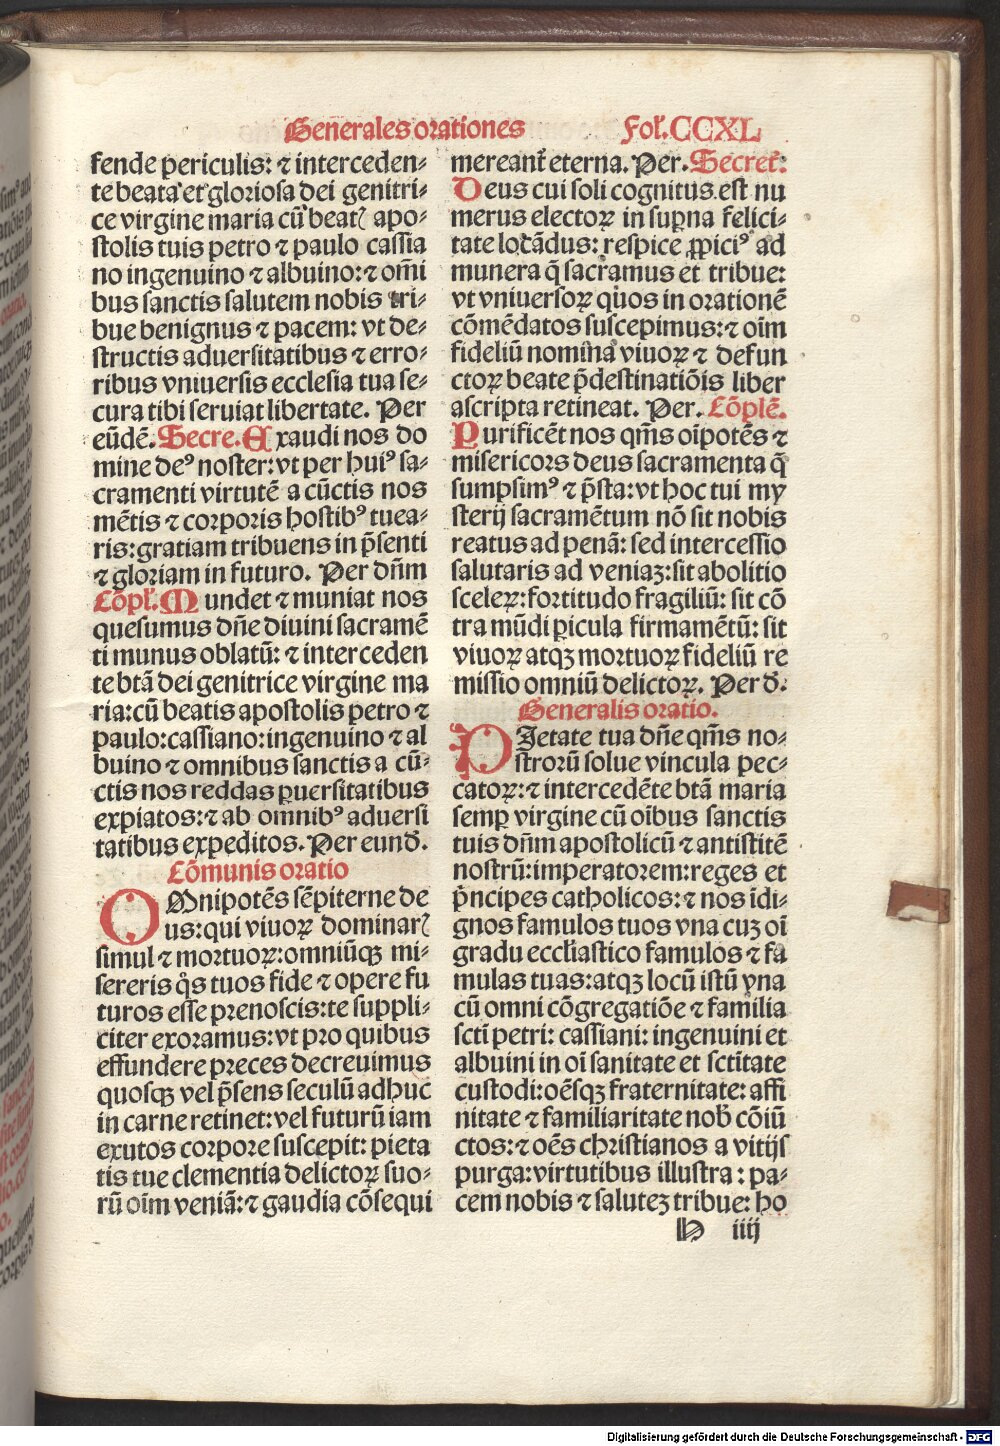 Generales orationes Fol. CCXL
fende periculis: ⁊ interceden⸗
te beata et gloriosa dei genitri⸗
ce virgine maria cū beatꝭ apo⸗
stolis tuis petro ⁊ paulo cassia
no ingenuino ⁊ albuino: ⁊ om̄i
bus sanctis salutem nobis tri⸗
bue benignus ⁊ pacem: vt de⸗
structis aduersitatibus ⁊ erro⸗
ribus vniuersis ecclesia tua se⸗
cura tibi seruiat libertate. Per
eūdē. Secre. Exaudi nos do
mine deꝰ noster: vt per huiꝰ sa⸗
cramenti virtutē a cūctis nos
mētis ⁊ corporis hostibꝰ tuea⸗
ris: gratiam tribuens in p̄senti
⁊ gloriam in futuro. Per dn̄m
Cōpl̄. Mundet ⁊ muniat nos
quesumus dn̄e diuini sacramē
ti munus oblatū: ⁊ interceden
te btā dei genitrice virgine ma
ria: cū beatis apostolis petro ⁊
paulo: cassiano: ingenuino ⁊ al
buino ⁊ omnibus sanctis a cū⸗
ctis nos reddas ꝑuersitatibus
expiatos: ⁊ ab omnibꝰ aduersi
tatibus expeditos. Per eund̄.
Cōmunis oratio
OMnipotēs sēpiterne de
us: qui viuoꝝ dominarꝭ
simul ⁊ mortuoꝝ: omniūqꝫ mi⸗
sereris q̄s tuos fide ⁊ opere fu
turos esse prenoscis: te suppli⸗
citer exoramus: vt pro quibus
effundere preces decreuimus
quosqꝫ vel p̄sens seculū adhuc
in carne retinet: vel futurū iam
exutos corpore suscepit: pieta
tis tue clementia delictoꝝ suo⸗
rū oīm veniā: ⁊ gaudia cōsequi
mereant̄ eterna. Per. Secret̄:
Deus cui soli cognitus est nu
merus electoꝝ in suꝑna felici⸗
tate locādus: respice ꝓpiciꝰ ad
munera q̄ sacramus et tribue:
vt vniuersoꝝ quos in orationē
cōmēdatos suscepimus: ⁊ oīm
fideliū nomina viuoꝝ ⁊ defun
ctoꝝ beate p̄destinatiōis liber
ascripta retineat. Per. Cōplē.
Purificēt nos qm̄s oīpotēs ⁊
misericors deus sacramenta q̄
sumpsimꝰ ⁊ p̄sta: vt hoc tui my
sterij sacramētum nō sit nobis
reatus ad penā: sed intercessio
salutaris ad veniaꝫ: sit abolitio
sceleꝝ: fortitudo fragiliū: sit cō
tra mūdi ꝑicula firmamētū: sit
viuoꝝ atqꝫ mortuoꝝ fideliū re
missio omniū delictoꝝ. Per d̄.
Generalis oratio.
PIetate tua dn̄e qm̄s no⸗
strorū solue vincula pec⸗
catoꝝ: ⁊ intercedēte btā maria
semꝑ virgine cū oībus sanctis
tuis dn̄m apostolicū ⁊ antistitē
nostrū: imperatorem: reges et
p̄ncipes catholicos: ⁊ nos īdi⸗
gnos famulos tuos vna cuꝫ oī
gradu eccl̄iastico famulos ⁊ fa
mulas tuas: atqꝫ locū istū vna
cū omni cōgregatiōe ⁊ familia
scti petri: cassiani: ingenuini et
albuini in oī sanitate et sctitate
custodi: oēsqꝫ fraternitate: affi
nitate ⁊ familiaritate nob̄ cōiū
ctos: ⁊ oēs christianos a vitijs
purga: virtutibus illustra: pa⸗
cem nobis ⁊ saluteꝫ tribue: ho
h iiij
Digitalisierung gefördert durch die Deutsche Forschungsgemeinschaft - DFG